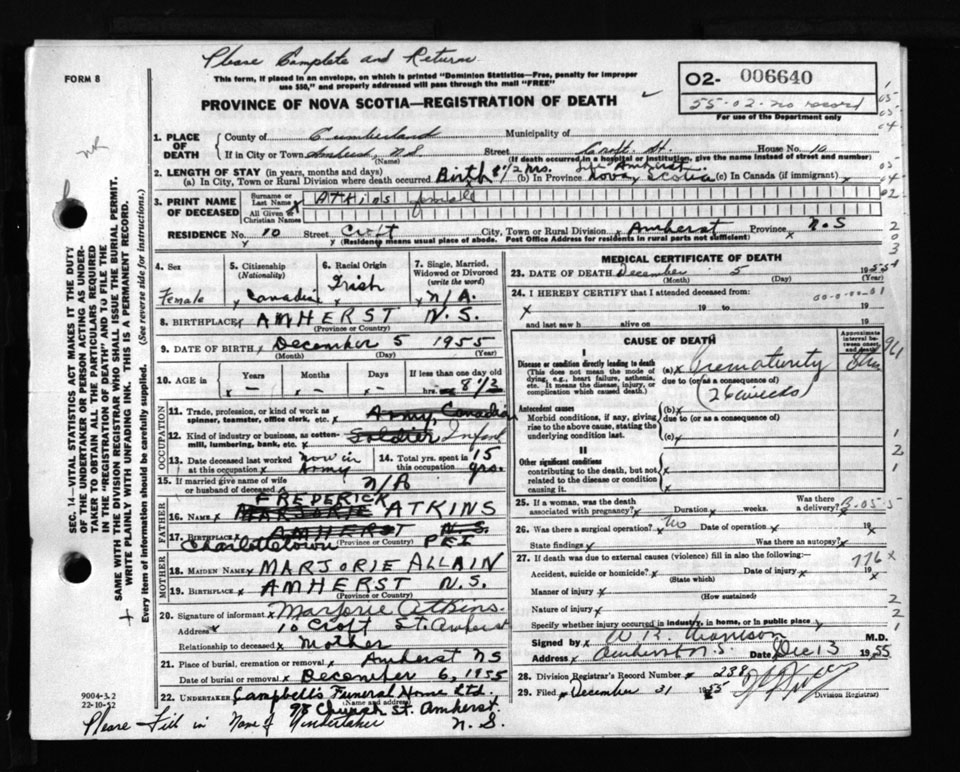 Please Complete and Return
FORM 8
This form, if placed in an envelope, on which is printed "Dominion Statistics—Free, penalty for improper
use $50," and properly addressed will pass through the mail "FREE"
PROVINCE OF NOVA SCOTIA—REGISTRATION OF DEATH
02- 006640
55-02-no record
For use of the Department only
1. PLACE OF DEATH
County of Cumberland Municipality of
If in City or Town Amherst, N.S. Street Croft St. House No. 10
(Name) (If death occurred in a hospital or institution, give the name instead of street and number)
2. LENGTH OF STAY (in years, months and days)
(a) In City, Town or Rural Division where death occurred Birth 8 1/2 hrs. (b) In Province Nova Scotia (c) In Canada (if immigrant) x
3. PRINT NAME OF DECEASED
Surname or Last Name x Atkins female
All Given or Christian Names
RESIDENCE No. 10 Street Croft City, Town or Rural Division x Amherst Province N.S
(Residence means usual place of abode. Post Office Address for residents in rural parts not sufficient)
4. Sex
Female
5. Citizenship
(Nationality)
x Canadian
6. Racial Origin
x Irish
7. Single, Married, Widowed or Divorced
(write the word)
x N/A.
8. BIRTHPLACE x AMHERST N.S.
(Province or Country)
9. DATE OF BIRTH x December 5 1955
(Month) (Day) (Year)
10. AGE in x
Years Months Days If less than one day old
- - - hrs. 8 1/2
OCCUPATION
11. Trade, profession, or kind of work as
spinner, teamster, office clerk, etc. x Army, Canadian
12. Kind of industry or business, as cotton-
mill, lumbering, bank, etc. x Soldier Infant
13. Date deceased last worked
at this occupation x now in Army
14. Total yrs. spent in
this occupation x 15 yrs.
15. If married give name of wife
or husband of deceased x N/A
FATHER
FREDERICK
16. NAME x MARJORIE ATKINS
17. BIRTHPLACE x AMHERST N.S.
Charlottetown (Province or Country) PEI
MOTHER
18. MAIDEN NAME x MARJORIE ALLAIN
19. BIRTHPLACE x AMHERST N.S.
(Province or Country)
20. Signature of informant x Marjorie Atkins.
Address x 10 Croft St. Amherst
Relationship to deceased x Mother
21. Place of burial, cremation or removal x Amherst NS
Date of burial or removal x December 6, 1955
22. UNDERTAKER Campbell's Funeral Home Ltd.
(Name and address)
98 Church St. Amherst.
N.S.
Please Fill in Name of Undertaker
9004-3.2
22-10-52
SEC. 14—VITAL STATISTICS ACT MAKES IT THE DUTY
OF THE UNDERTAKER OR PERSON ACTING AS UNDER-
TAKER TO OBTAIN ALL THE PARTICULARS REQUIRED
IN THE "REGISTRATION OF DEATH" AND TO FILE THE
SAME WITH THE DIVISION REGISTRAR WHO SHALL ISSUE THE BURIAL PERMIT.
WRITE PLAINLY WITH UNFADING INK. THIS IS A PERMANENT RECORD.
Every item of information should be carefully supplied. (See reverse side for instructions.)
MEDICAL CERTIFICATE OF DEATH
23. DATE OF DEATH December 5 1955
(Month) (Day)
24. I HEREBY CERTIFY that I attended deceased from:
x 19 to 19
and last saw h alive on 19
CAUSE OF DEATH
Approximate interval between onset and death
I
Disease or condition directly leading to death
(This does not mean the mode of
dying, e.g., heart failure, asthenia,
etc. It means the disease, injury, or
complication which caused death.)
(a) x Prematurity
due to (or as a consequence of)
(26 weeks)
Antecedent causes
Morbid conditions, if any, giving
rise to the above cause, stating the
underlying condition last.
(b) x
due to (or as a consequence of)
(c) x
II
Other significant conditions
contributing to the death, but not
related to the disease or condition
causing it.
25. If a woman, was the death
associated with pregnancy? x Duration x weeks. Was there a delivery?
26. Was there a surgical operation? x No Date of operation x 19
State findings x Was there an autopsy? x
27. If death was due to external causes (violence) fill in also the following:
776 x
Accident, suicide or homicide? x Date of injury x 19
(State which)
Manner of injury x
(How sustained)
Nature of injury x
Specify whether injury occurred in industry, in home, or in public place
Signed by x W R Morrison M.D.
Address x Amherst N.S. Date Dec 13 1955
28. Division Registrar's Record Number x 238
29. Filed December 31 1955
Division Registrar